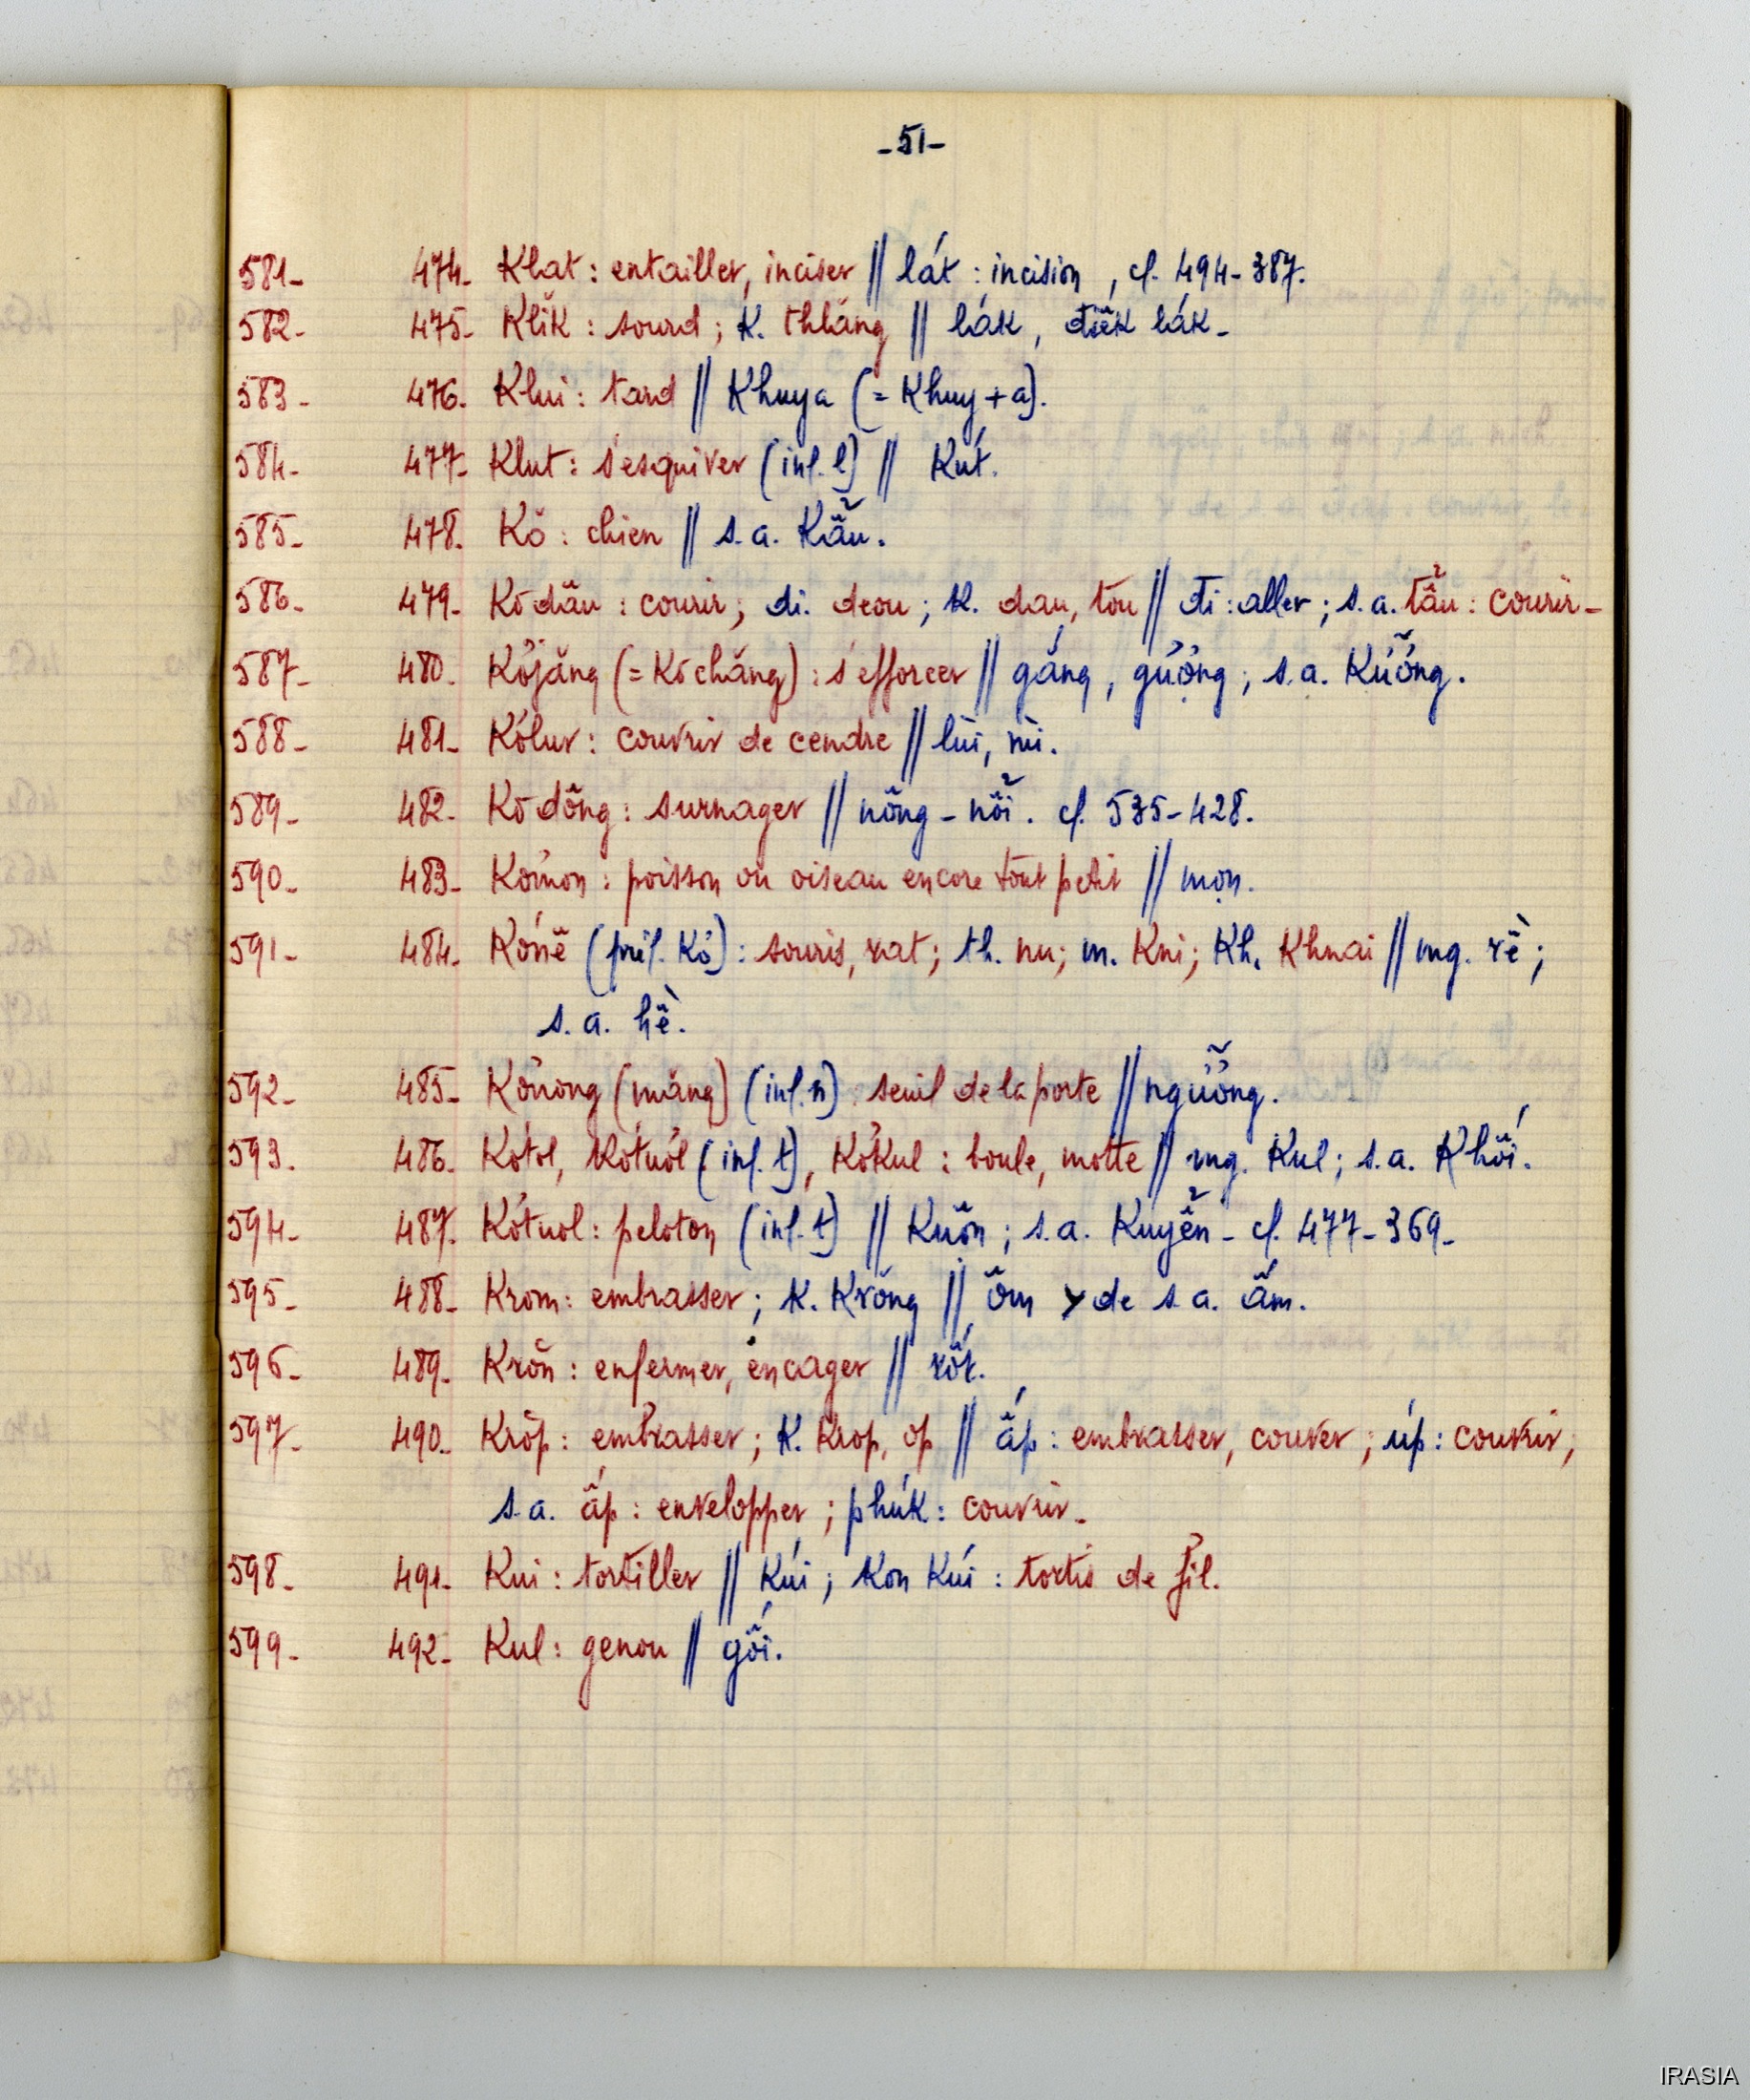 -51-
581- 474- Klat : entailler, inciser // lát : incision , cf. 494-387.
582- 475- Klik : sourd ; K. thlăng // lák , điếk lák -
583- 476. Klui : tard // Khuya (= Khuy + a).
584- 477- Klut : s'esquiver (inf. l) // Kút.
585- 478. Kŏ : chien // s.a. Kẩu.
586- 479- Kơdâu : courir ; di. deou ; K. dau, tou // đi : aller ; s.a. tẩu : courir -
587- 480. Kơjăng (= Kơchăng) : s'efforcer // gáng , gượng ; s.a. Kưỡng.
588- 481- Kơlur : couvrir de cendre // lùi, nùi.
589- 482- Kơdông : surnager // nông - nổi . cf. 535-428.
590- 483- Kơmon : poisson ou oiseau encore tout petit // mọn.
591- 484- Kơnê (préf. Kơ) : souris, rat ; th. nu ; m. Kni ; Kh. Khnai // mg. rề ;
s.a. hề.
592- 485- Kơnong (măng) (inf. n) : seuil de la porte // ngưỡng.
593. 486- Kơtol, Kơtuôl (inf. t), Kơkul : boule, motte // mg. Kul ; s.a. Khối.
594- 487- Kơtuol : peloton (inf. t) // Kuộn ; s.a. Kuyển - cf. 477-369-
595- 488- Krom : embrasser ; K. Krŏng // ôm y de s.a. ấm.
596- 489- Krŏn : enfermer, encager // rốt.
597- 490- Krŏp : embrasser ; K. Krop, op // ấp : embrasser, couver ; úp : couvrir ;
s.a. ấp : envelopper ; phúk : couvrir -
598- 491- Kui : tortiller // Kúi ; Kon Kúi : tortis de fil.
599- 492- Kul : genou // gối.
IRASIA